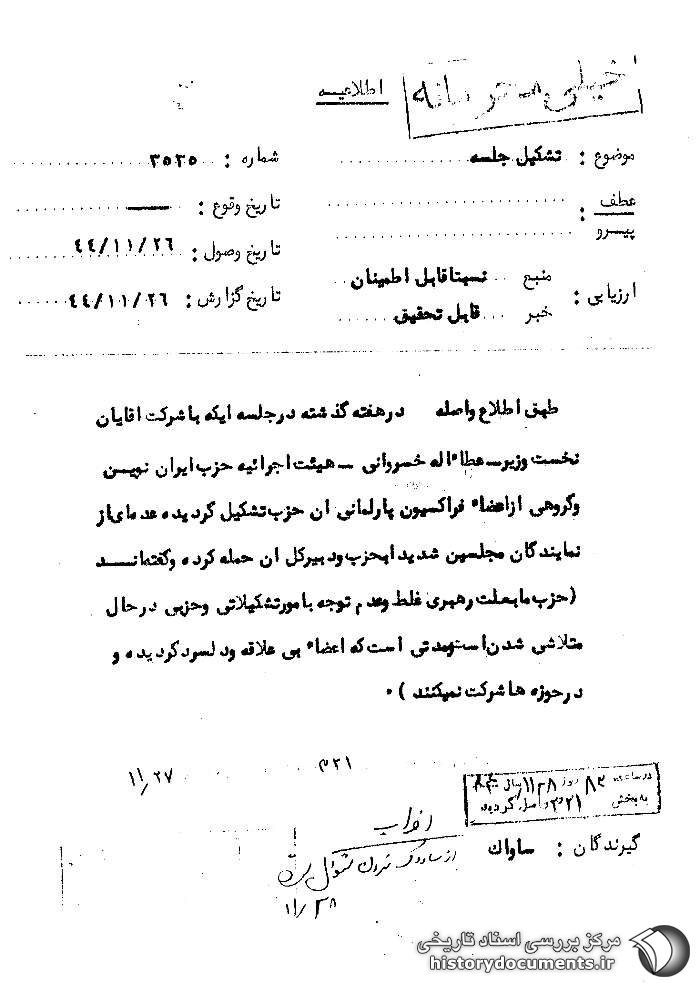 خیلی محرمانه
اطلاعیه
موضوع : تشکیل جلسه
شماره : ۳۵۲۵
عطف
پیرو :
تاریخ وقوع : ــــ
تاریخ وصول : ۴۴/۱۱/۲۶
ارزیابی : منبع نسبتا قابل اطمینان
خبر قابل تحقیق
تاریخ گزارش : ۴۴/۱۱/۲۶
طبق اطلاع واصله در هفته گذشته در جلسه ایکه با شرکت اقایان
نخست وزیر ــ عطاء اله خسروانی ــ هیئت اجرائیه حزب ایران نویسن
و گروهی از اعضاء فراکسیون پارلمانی ان حزب تشکیل گردیده عده ای از
نمایندگان مجلسین شدیدا بحزب و دبیر کل ان حمله کرده و گفته انـــد
(حزب ما بعلت رهبری غلط و عدم توجه بامور تشکیلاتی و حزبی در حال
متلاشی شدن است و مدتی است که اعضاء بی علاقه و دلسرد گردیده و
در حوزه ها شرکت نمیکنند ) ۰
۳۲۱
۱۱/۲۷
در ساعت ۸۲ روز ۱۱/۲۸
به بخش ۳۲۱ واصل گردید
گیرندگان : ساواک
از ساواک تهران سئوال شده
۱۱/۲۸
مرکز بررسی اسناد تاریخی
historydocuments.ir